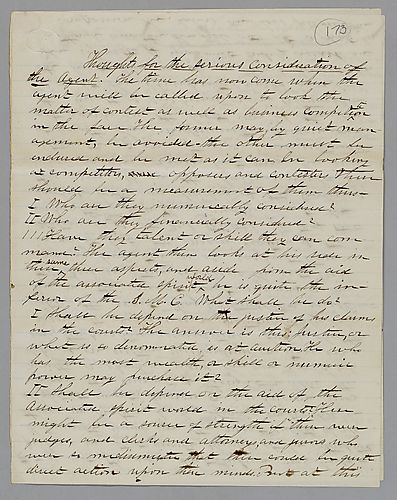 173
Thoughts for the serious Consideration of
the Agent. The time has now come when the
agent will be called upon to look the
matter of contest as well as business competition
in the face. The former may, by quiet man
agement, be avoided. the other must be
endured and be met as it can be. looking
at competitors, opposers and contesters there
should be a measurement of them thus
I Who are they numerically considered?
II Who are they financially considered?
III Have they talent or skill they can com
mand. The agent then looks at his side in
these same three aspects, and aside from the aid
of the associated spirit world he is quite the in
ferior of the S. M. C. What shall he do?
I Shall he depend on the justice of his claims
in the courts? The answer is this, justice, or
what is so denominated, is at auction. He who
has the most wealth, or skill or numeric
power may purchase it?
II Shall he depend on the aid of the
Associated Spirit world in the courts? There
might be a source of strength if there were
judges, and clerks and attorneys, and jurors who
were so mediumistic that there could be quite
direct action upon their minds. But at this